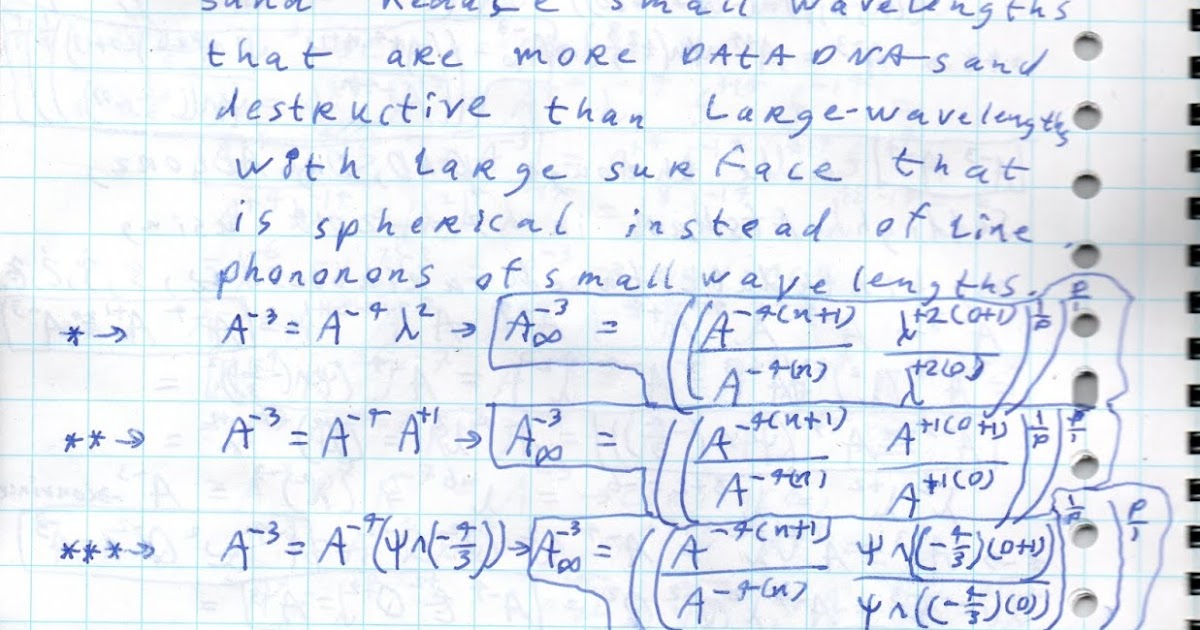 sand Reduse small wavelengths
that are more DATADNAsand
destructive than Large-wavelengths
with Large surface that
is spherical instead of Line
phononons of small wave lengths.
*→ A⁻³ = A⁻⁴ λ² → A∞⁻³ = ((A⁻⁴⁽ⁿ⁺¹⁾/A⁻⁴⁽ⁿ⁾ λ⁺²⁽⁰⁺¹⁾/λ⁺²⁽⁰⁾)^(1/p))^(p/1)
**→ A⁻³ = A⁻⁴ A⁺¹ → A∞⁻³ = ((A⁻⁴⁽ⁿ⁺¹⁾/A⁻⁴⁽ⁿ⁾ A⁺¹⁽⁰⁺¹⁾/A⁺¹⁽⁰⁾)^(1/p))^(p/1)
***→ A⁻³ = A⁻⁴(ψ^(-4/3)) → A∞⁻³ = ((A⁻⁴⁽ⁿ⁺¹⁾/A⁻⁴⁽ⁿ⁾ ψ^((-4/3)(0+1))/ψ^((-4/3)(0)))^(1/p))^(p/1)